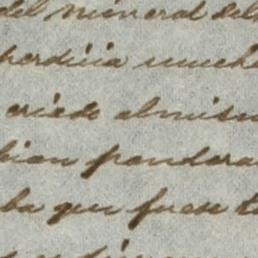 del mineral del
perdicia mucha
criado al mism
bian pondera
ba que fuese t